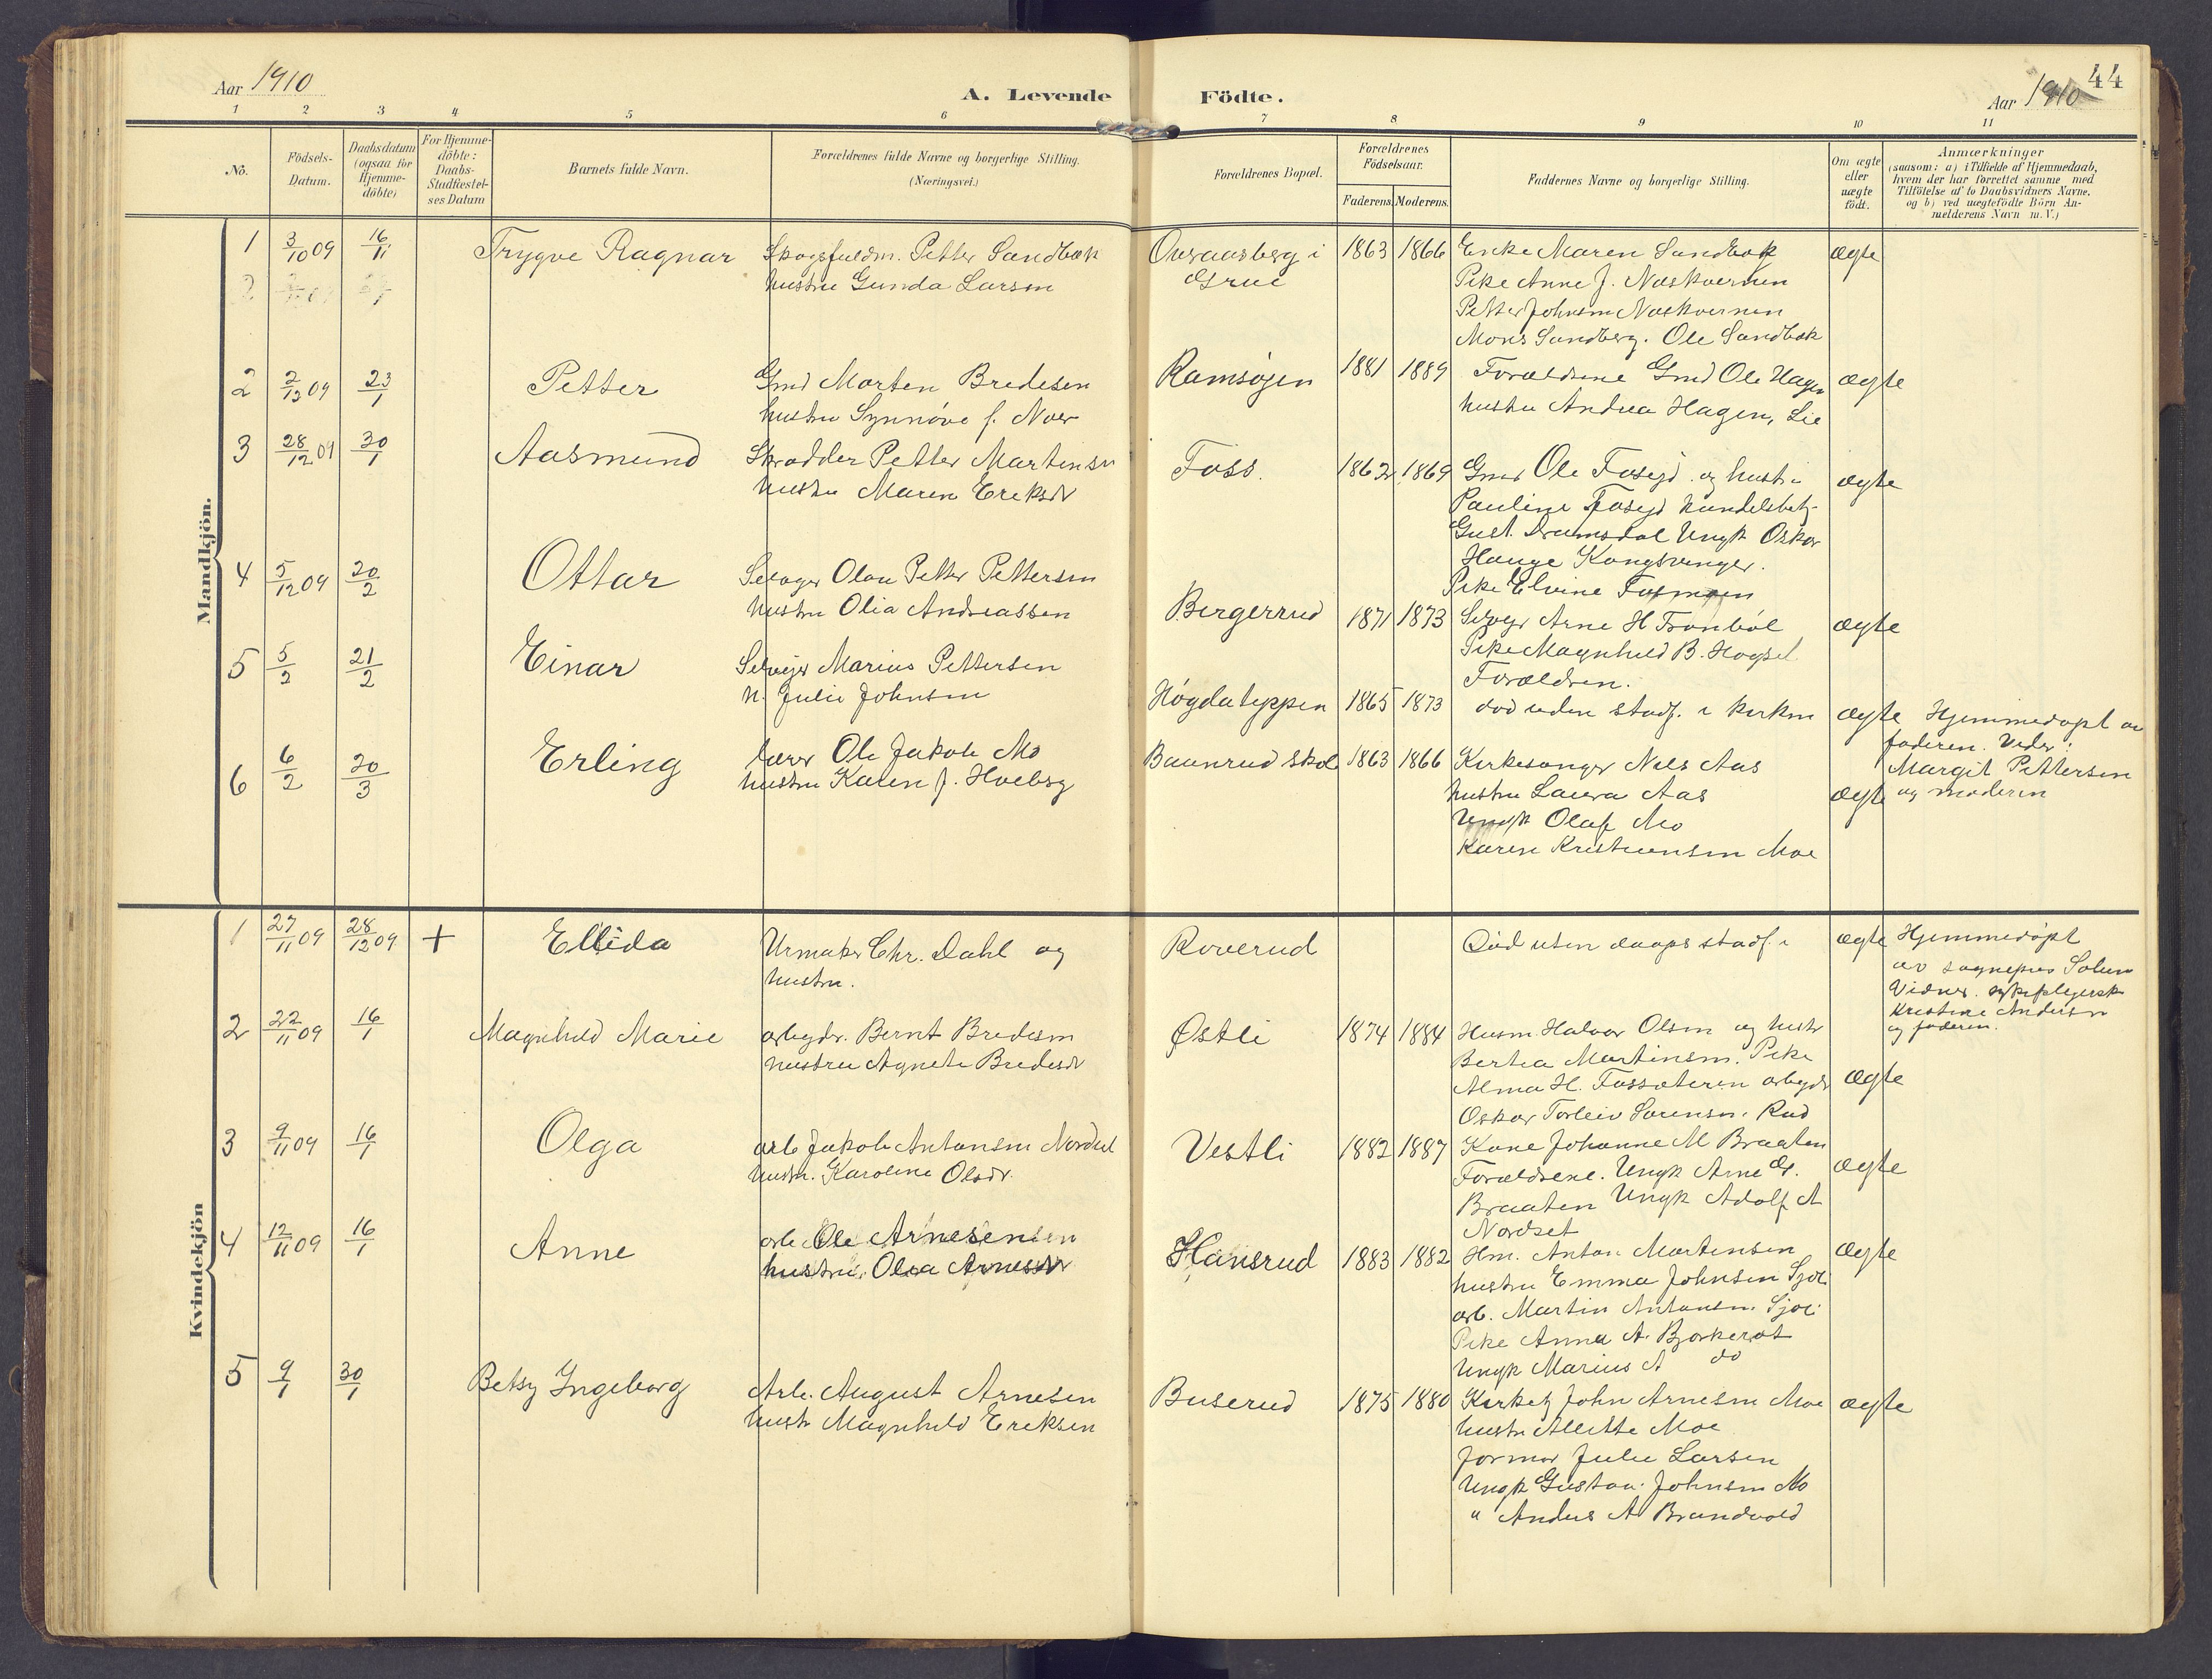 44
Aar 1910
A. Levende Födte.
Aar 1910
1 2 3 4 5 6 7 8 9 10 11
No.
Födsels-
Datum.
Daabsdatum
(ogsaa for
Hjemme-
döbte)
For Hjemme-
döbte:
Daabs-
Stadfæstel-
ses Datum
Barnets fulde Navn.
Forældrenes fulde Navne og borgerlige Stilling.
(Næringsvei.)
Forældrenes Bopæl.
Forældrenes
Födselsaar.
Faderens. Moderens.
Faddernes Navne og borgerlige Stilling.
Om ægte
eller
uægte
födt.
Anmærkninger
(saasom: a) i Tilfælde af Hjemmedaab,
hvem der har forrettet samme med
Tilföielse af to Daabsvidners Navne,
og b) ved uægtefödte Börn An-
melderens Navn m.V.)
Mandkjön.
1 3/10 09 16/1 Trygve Ragnar Skogsfuldm. Petter Sandbæk
hustru Gunda Larsen
Overaasberg i
Grue
1863 1866 Enke Maren Sandbæk
Pike Anne J. Næskvernen
Petter Johnsen Næskvernen
Mons Sandberg. Ole Sandbæk
ægte
2 2/12 09 23/1 Petter Gmd Morten Bredesen
hustru Synnöve f. Noer
Ramsöien 1881 1889 Forældrene Gmd Ole Hagen
hustru Andrea Hagen, Lie
ægte
3 28/12 09 30/1 Aasmund Skrædder Petter Martinsen
hustru Maren Eriksdr
Foss. 1862 1869 Gmd Ole Foseid og hustru
Pauline Foseid handelsbetj.
Gust. Dramsdal Ungk Oskar
Hauge Kongsvinger.
Pike Elvine Fosmoen
ægte
4 5/12 09 20/2 Ottar Selveger Olau Petter Pettersen
hustru Olia Andreassen
Bergerrud 1871 1873 Selveger Arne H Tranböl
Pike Magnhild B. Hogsel
Forældren.
ægte
5 5/2 21/2 Einar Selveier Marius Pettersen
h. Julie Johnsen
Högdateppen 1865 1873 död uden stadf. i kirken
ægte Hjemmedöpt av
faderen. Vidner:
Margit Pettersen
og moderen
6 6/2 20/3 Erling Lærer Ole Jakob Mo
hustru Karen f. Hoeberg
Baanrud skole 1863 1866 Kirkesanger Nils Aas
hustru Laura Aas
Ungk Olaf Mo
Karen Kristiansen Moe
ægte
Kvindekjön
1 27/11 09 28/12 09 + Ellida Urmaker Chr. Dahl og
hustru.
Roverud Död uten daaps stadf.
ægte Hjemmedöpt
av sogneprest Solum
Vidner. sykepleierske
Kristine Andersen
og faderen.
2 22/11 09 16/1 Magnhild Marie arbeider. Bernt Bredesen
hustru Agnete Bredesdr
Østli 1874 1884 Husm. Halvor Olsen og hustr
Bertea Martinsen. Pike
Alma H. Fossæteren arbeider
Oskar Torleiv Sorensen. Rud
ægte
3 9/11 09 16/1 Olga arb Jakob Antonsen Nordset
hustr. Karoline Olsdr.
Vestli 1882 1887 Kone Johanne M Braaten
Forældrene. Ungk Arne G.
Braaten Ungk Adolf A
Nordset
ægte
4 12/11 09 16/1 Anne arb Ole Arnesen
hustru Olea Arnesdr
Hansrud 1883 1882 Hm. Anton Martinsen
hustru Emma Johnsen Sjoli
arb. Martin Antonsen Sjoli
Pike Anna A. Bjorkerot
Ungk Marius A do
ægte
5 9/1 30/1 Betsy Ingeborg Arb. August Arnesen
hustr Magnhild Eriksen
Buserud 1875 1880 Kirketj John Arnesen Moe
hustr Alette Moe
Jormor Julie Larsen
Ungk Gustav Johnsen Mo
" Anders A Brandvold
ægte